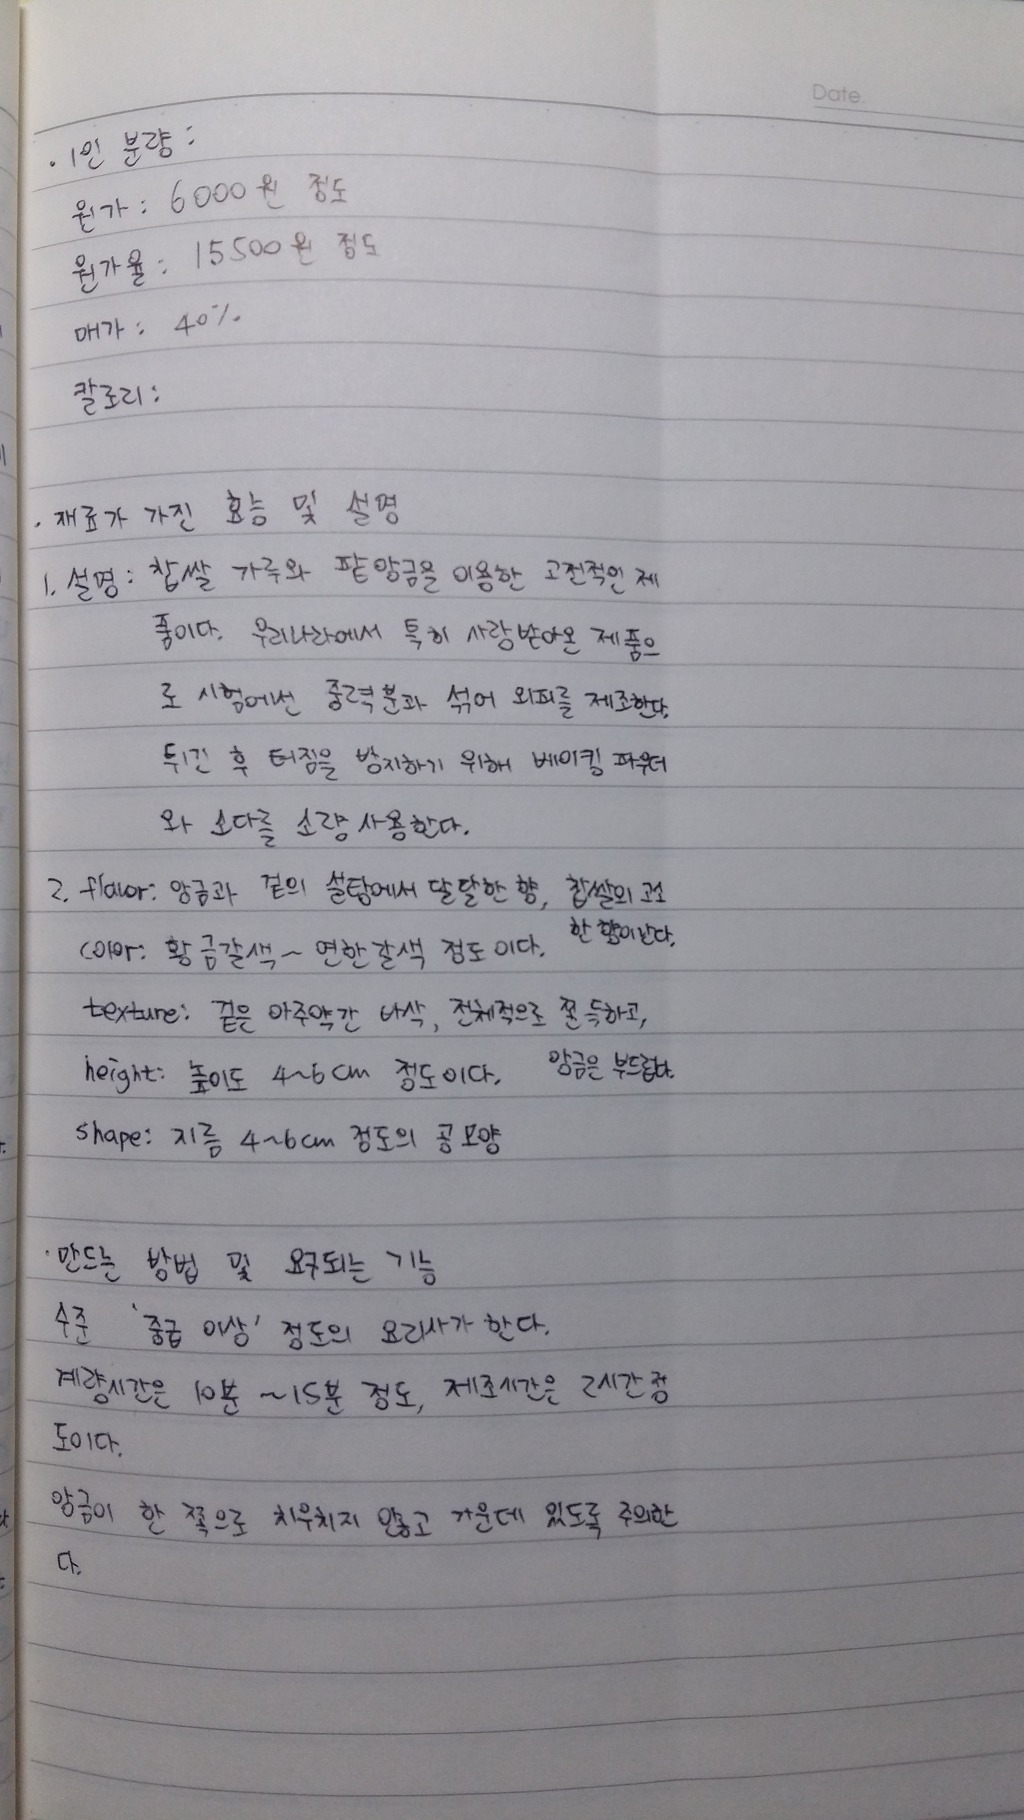 Date.
· 1인 분량 :
원가 : 6000원 정도
원가율 : 15500원 정도
매가 : 40%
칼로리 :
· 재료가 가진 효능 및 설명
1. 설명 : 찹쌀 가루와 팥앙금을 이용한 고전적인 제
품이다. 우리나라에서 특히 사랑받아온 제품으
로 시험에선 중력분과 섞어 외피를 제조한다.
튀긴 후 터짐을 방지하기 위해 베이킹 파우더
와 소다를 소량 사용한다.
2. flavor: 앙금과 겉의 설탕에서 달달한 향, 찹쌀의 고소
한 향이 난다.
color: 황금갈색~ 연한갈색 정도이다.
texture: 겉은 아주약간 바삭, 전체적으로 쫀득하고,
앙금은 부드럽다.
height: 높이도 4~6cm 정도이다.
shape: 지름 4~6cm 정도의 공모양
· 만드는 방법 및 요구되는 기능
수준 '중급 이상' 정도의 요리사가 한다.
계량시간은 10분 ~15분 정도, 제조시간은 2시간 정
도이다.
앙금이 한 쪽으로 치우치지 않고 가운데 있도록 주의한
다.